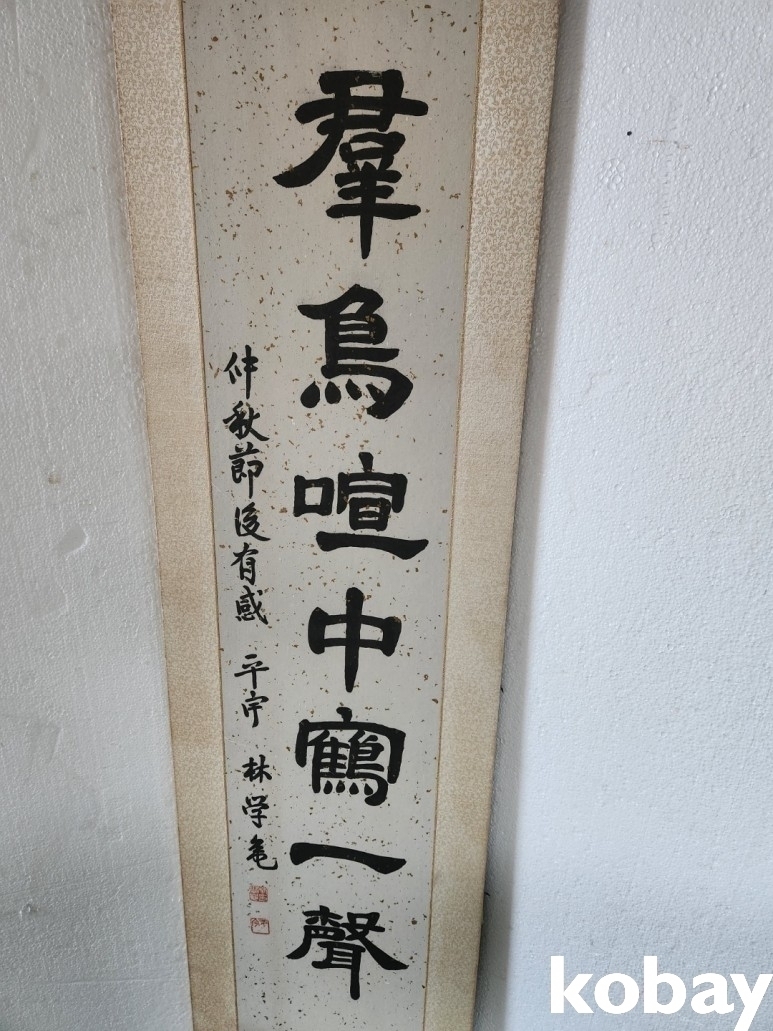 羣鳥喧中鶴一聲
仲秋節後有感 平宇 林学
kobay